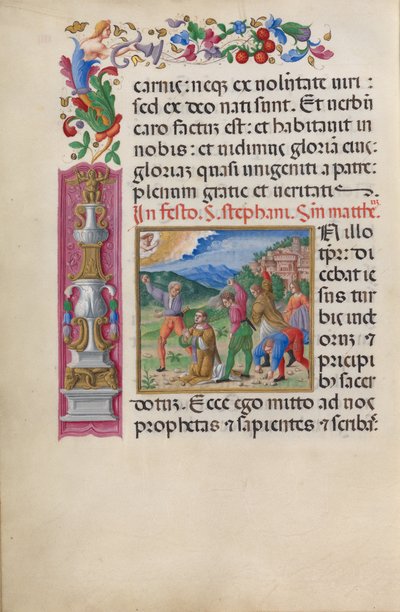 carnis: neq ex volũtate viri:
sed ex deo nati sunt. Et verbũ
caro factũ est: et habitavit in
nobis: et vidimus gloriã eius:
gloriaz quasi unigeniti a patre:
plenum gratie et veritatis
In festo. S. stephani. Sm matthe
N illo
tpr: di
cebat ie
sus tur
bis iude
oruz et
pricipi
bȝ sacer
dotuz. Ecce ego mitto ad vos
prophetas et sapientes et scribas: